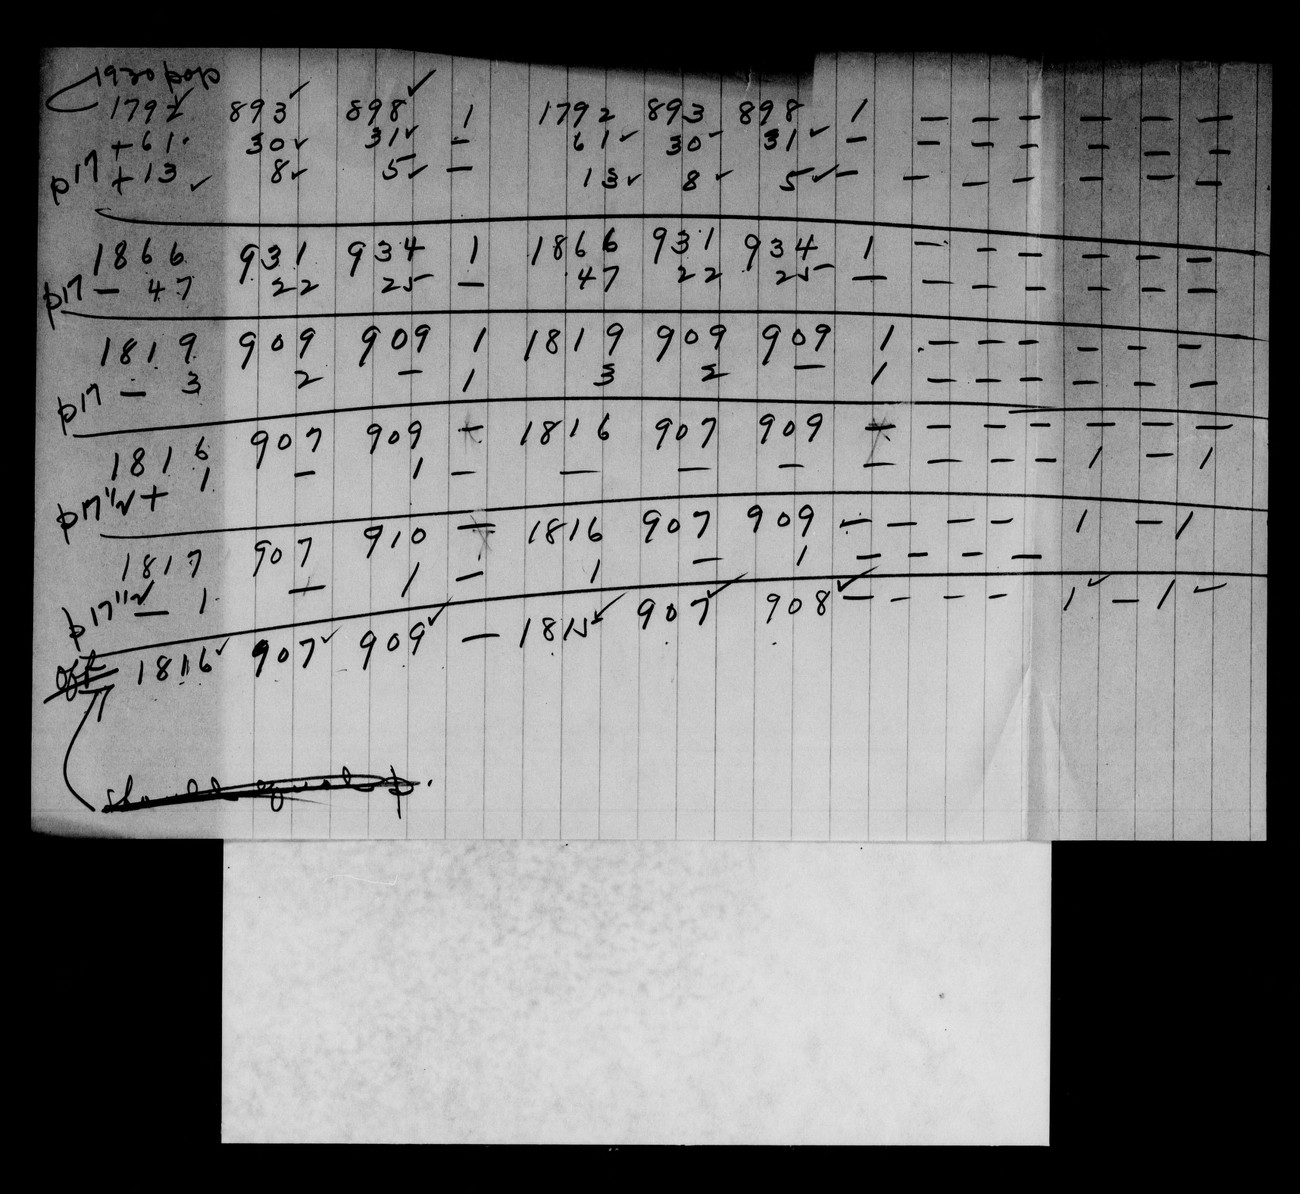 1920 pop
1792 893 898 1 1792 893 898 1 — — — — — —
+ 61 30 31 — 61 30 31 — — — — — — —
p17 + 13 8 5 — 13 8 5 — — — — — — —
1866 931 934 1 1866 931 934 1 — — — — — —
p17 — 47 22 25 — 47 22 25 — — — — — — —
1819 909 909 1 1819 909 909 1 — — — — — —
p17 — 3 2 — 1 3 2 — 1 — — — — — —
1816 907 909 — 1816 907 909 — — — — — — —
+ 1 — 1 — — — — — — — — 1 — 1
1817 907 910 — 1816 907 909 — — — — 1 — 1
— 1 — 1 — 1 — 1 — — — —
1816 907 909 — 1815 907 908 — — — — 1 — 1 —
should equal p.